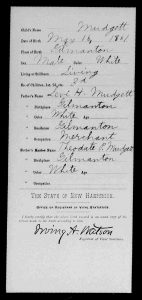 Child's Name Mudgett
Date of Birth May 16, 1861
Place of Birth Gilmanton
Sex Male Color White
Living or Stillborn Living
No. of Children, 1st, 2d, etc. 2d
Father's Name Levi H. Mudgett
" Birthplace Gilmanton
Color White Age
" Residence Gilmanton
" Occupation Merchant
Mother's Maiden Name Theodate P. Mudgett
" Birthplace Gilmanton
Color White Age
" Occupation
THE STATE OF NEW HAMPSHIRE.
OFFICE OF REGISTRAR OF VITAL STATISTICS.
I hereby certify that the above birth record is an exact copy of the
Irving A. Watson
Registrar of Vital Statistics.